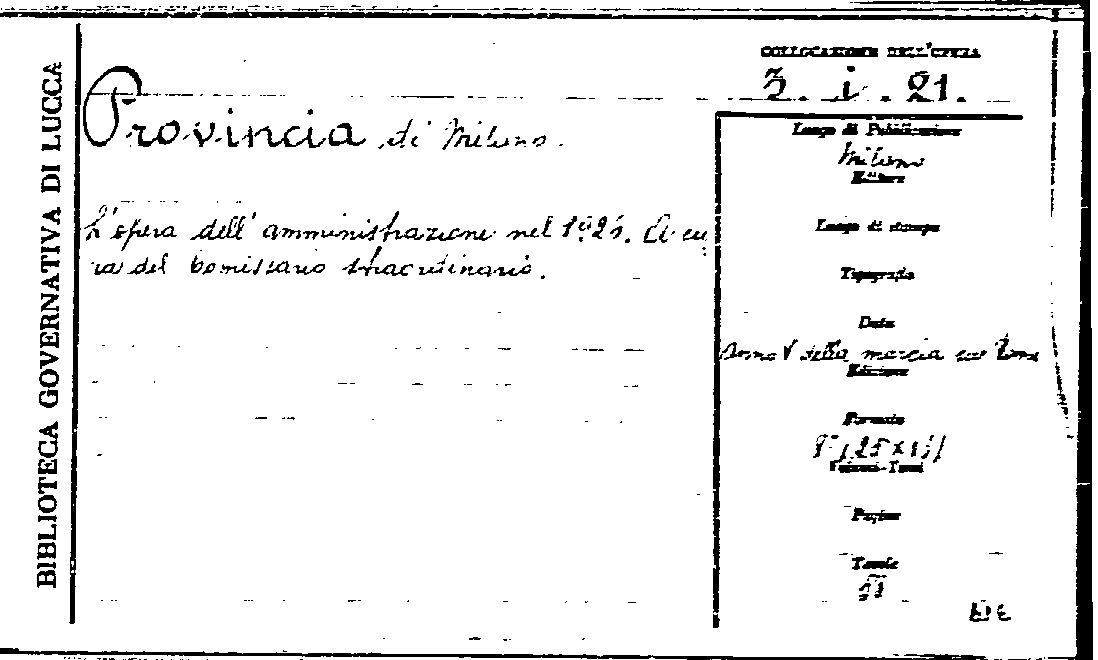 BIBLIOTECA GOVERNATIVA DI LUCCA
COLLOCAZIONE DELL'OPERA
3. i. 21.
Provincia di Milano.
L'opera dell'amministrazione nel A cu
ra del Comissario straordinario.
Luogo di Pubblicazione
Milano
Editore
Luogo di stampa
Tipografia
Data
Anno V della marcia su Roma
Edizione
Formato
8°
Volumi-Tomi
Pagine
Tavole